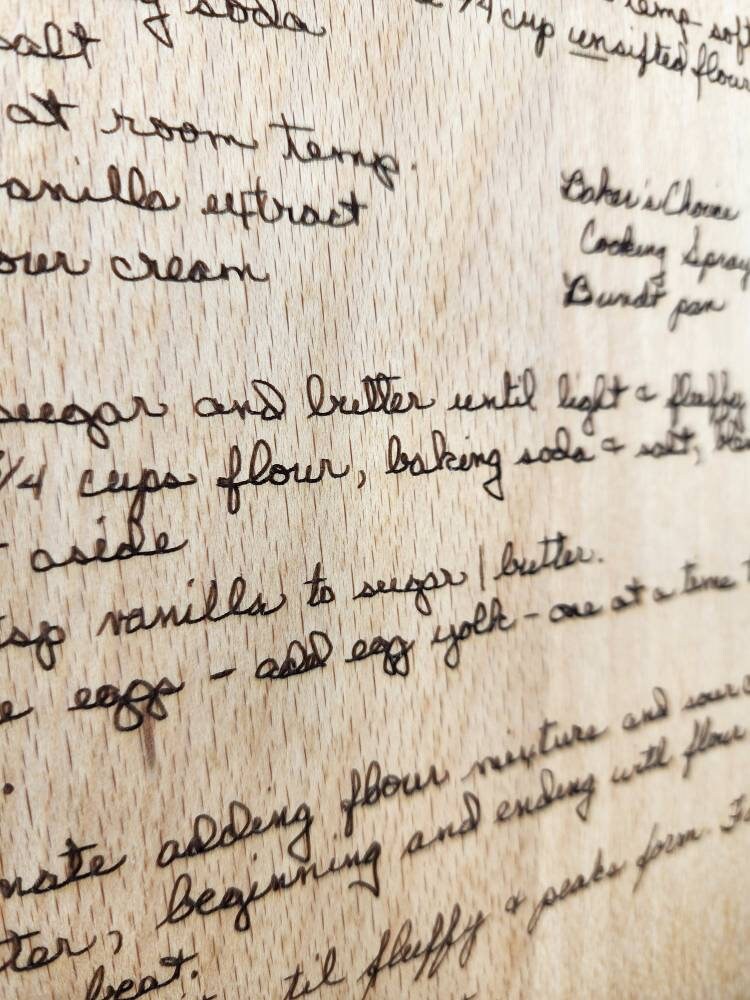 soda
1/4 cup unsifted flour
salt
at room temp.
vanilla extract
Baker's Choice
cream
Cooking Spray
Bundt pan
sugar and butter until light & fluffy
/4 cups flour, baking soda & salt,
aside
tsp vanilla to sugar/butter.
eggs - add egg yolk - one at a time
adding flour mixture and sour
beginning and ending with flour
til fluffy & peaks form.
beat.